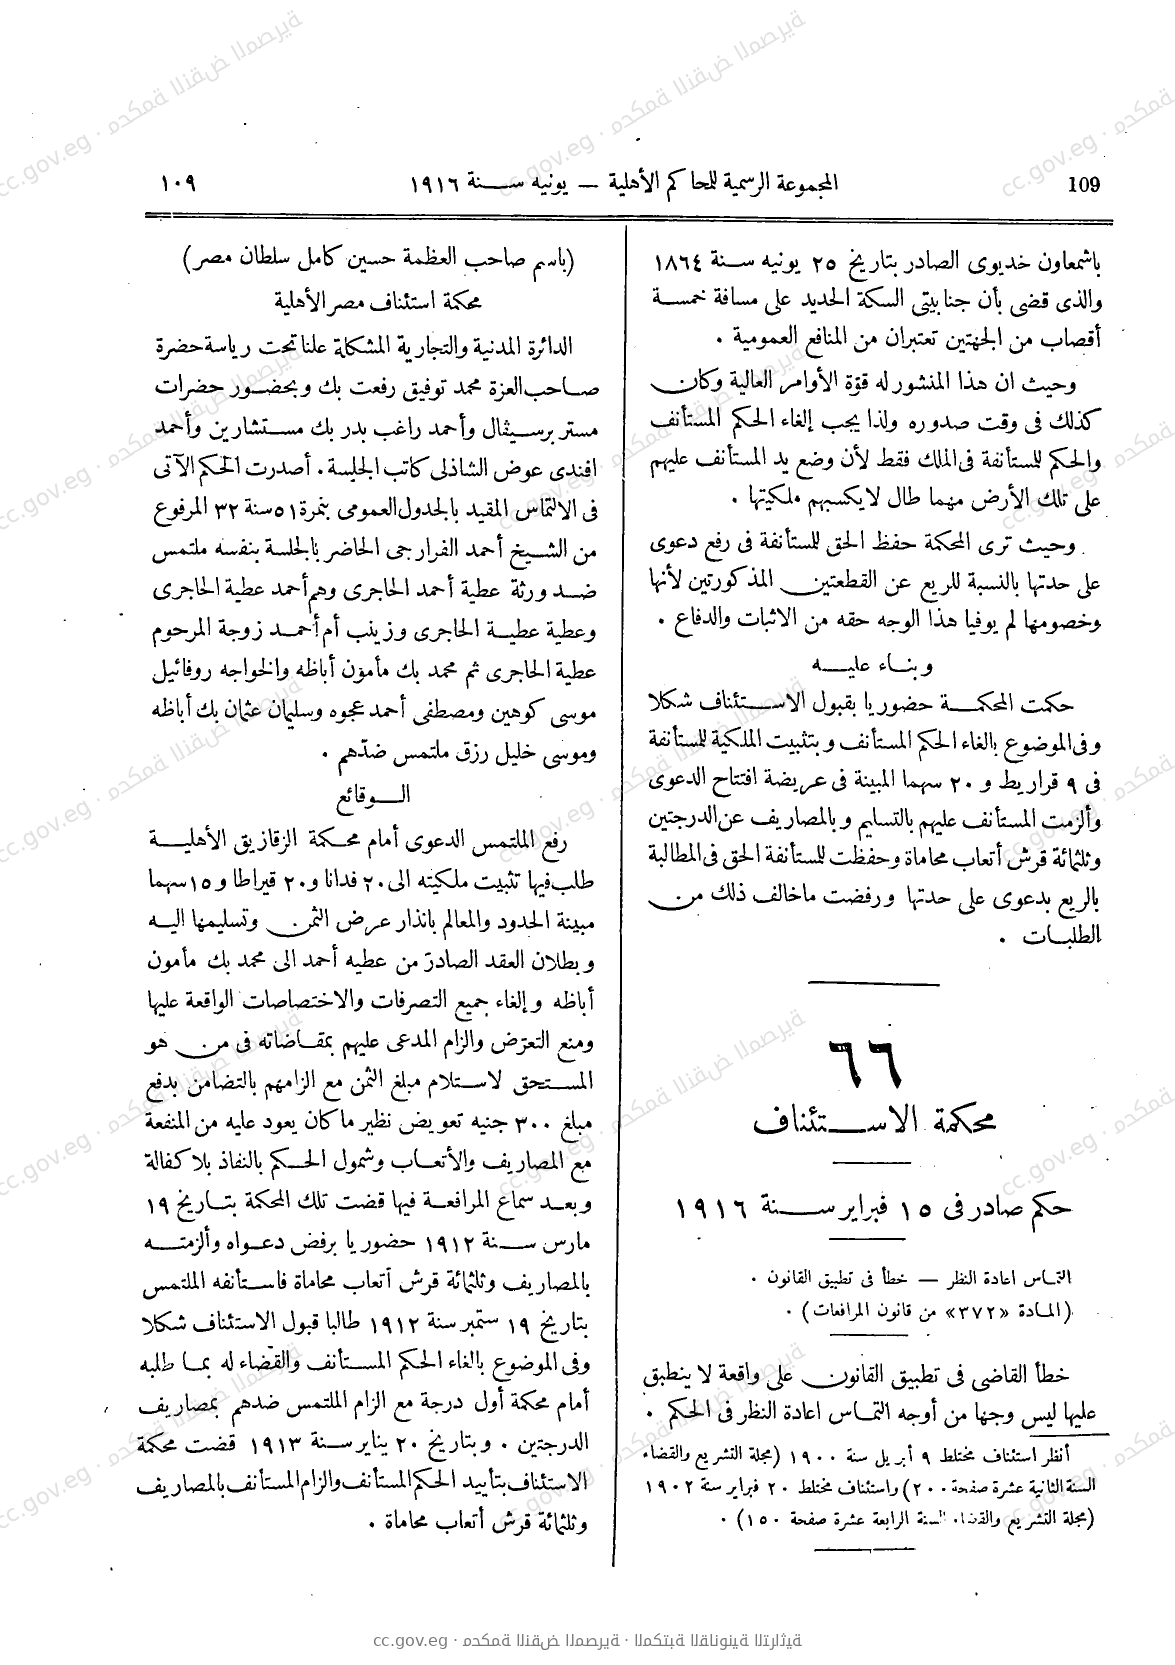 109
المجموعة الرسمية للمحاكم الأهلية — يونيه سنة ١٩١٦
١٠٩
باشمعاون خديوى الصادر بتاريخ ٢٥ يونيه سنة ١٨٦٤
والذى قضى بأن جنابيتى السكة الحديد على مسافة خمسة
أقصاب من الجهتين تعتبران من المنافع العمومية .
وحيث ان هذا المنشور له قوّة الأوامر العالية وكان
كذلك فى وقت صدوره ولذا يجب إلغاء الحكم المستأنف
والحكم للمستأنفة فى الملك فقط لأن وضع يد المستأنف عليهم
على تلك الأرض مهما طال لا يكسبهم ملكيتها .
وحيث ترى المحكمة حفظ الحق للمستأنفة فى رفع دعوى
على حدتها بالنسبة للريع عن القطعتين المذكورتين لأنها
وخصومها لم يوفيا هذا الوجه حقه من الاثبات والدفاع .
وبناء عليه
حكمت المحكمة حضوريا بقبول الاستئناف شكلا
وفى الموضوع بالغاء الحكم المستأنف وبتثبيت الملكية للمستأنفة
فى ٩ قراريط و ٢٠ سهما المبينة فى عريضة افتتاح الدعوى
وألزمت المستأنف عليهم بالتسليم وبالمصاريف عن الدرجتين
وثلثمائة قرش أتعاب محاماة وحفظت للمستأنفة الحق فى المطالبة
بالريع بدعوى على حدتها ورفضت ماخالف ذلك من
الطلبات .
٦٦
محكمة الاستئناف
حكم صادر فى ١٥ فبراير سنة ١٩١٦
التماس اعادة النظر — خطأ فى تطبيق القانون .
(المادة «٣٧٢» من قانون المرافعات) .
خطأ القاضى فى تطبيق القانون على واقعة لا ينطبق
عليها ليس وجها من أوجه التماس اعادة النظر فى الحكم .
أنظر استئناف مختلط ٩ أبريل سنة ١٩٠٠ (مجلة التشريع والقضاء
السنة الثانية عشرة صفحة ٢٠٠) واستئناف مختلط ٢٠ فبراير سنة ١٩٠٢
(مجلة التشريع والقضاء السنة الرابعة عشرة صفحة ١٥٠) .
(باسم صاحب العظمة حسين كامل سلطان مصر)
محكمة استئناف مصر الأهلية
الدائرة المدنية والتجارية المشكلة علنا تحت رياسة حضرة
صاحب العزة محمد توفيق رفعت بك وبحضور حضرات
مستر برسيڤال وأحمد راغب بدر بك مستشارين وأحمد
افندى عوض الشاذلى كاتب الجلسة . أصدرت الحكم الآتى
فى الالتماس المقيد بالجدول العمومى بنمرة ٥١ سنة ٣٢ المرفوع
من الشيخ أحمد الفرارجى الحاضر بالجلسة بنفسه ملتمس
ضد ورثة عطية أحمد الحاجرى وهم أحمد عطية الحاجرى
وعطية عطية الحاجرى وزينب أم أحمد زوجة المرحوم
عطية الحاجرى ثم محمد بك مأمون أباظه والخواجه روفائيل
موسى كوهين ومصطفى أحمد عجوه وسليمان عثمان بك أباظه
وموسى خليل رزق ملتمس ضدّهم .
الوقائع
رفع الملتمس الدعوى أمام محكمة الزقازيق الأهلية
طلب فيها تثبيت ملكيته الى ٢٠ فدانا و ٢٠ قيراطا و ١٥ سهما
مبينة الحدود والمعالم بانذار عرض الثمن وتسليمها اليه
وبطلان العقد الصادر من عطيه أحمد الى محمد بك مأمون
أباظه وإلغاء جميع التصرفات والاختصاصات الواقعة عليها
ومنع التعرّض والزام المدعى عليهم بمقاضاته فى من هو
المستحق لاستلام مبلغ الثمن مع الزامهم بالتضامن بدفع
مبلغ ٣٠٠ جنيه تعويض نظير ما كان يعود عليه من المنفعة
مع المصاريف والأتعاب وشمول الحكم بالنفاذ بلا كفالة
وبعد سماع المرافعة فيها قضت تلك المحكمة بتاريخ ١٩
مارس سنة ١٩١٢ حضوريا برفض دعواه وألزمته
بالمصاريف وثلثمائة قرش أتعاب محاماة فاستأنفه الملتمس
بتاريخ ١٩ ستمبر سنة ١٩١٢ طالبا قبول الاستئناف شكلا
وفى الموضوع بالغاء الحكم المستأنف والقضاء له بما طلبه
أمام محكمة أول درجة مع الزام الملتمس ضدهم بمصاريف
الدرجتين . وبتاريخ ٢٠ يناير سنة ١٩١٣ قضت محكمة
الاستئناف بتأييد الحكم المستأنف والزام المستأنف بالمصاريف
وثلثمائة قرش أتعاب محاماة .
cc.gov.eg · محكمة النقض المصرية · المكتبة القانونية التراثية